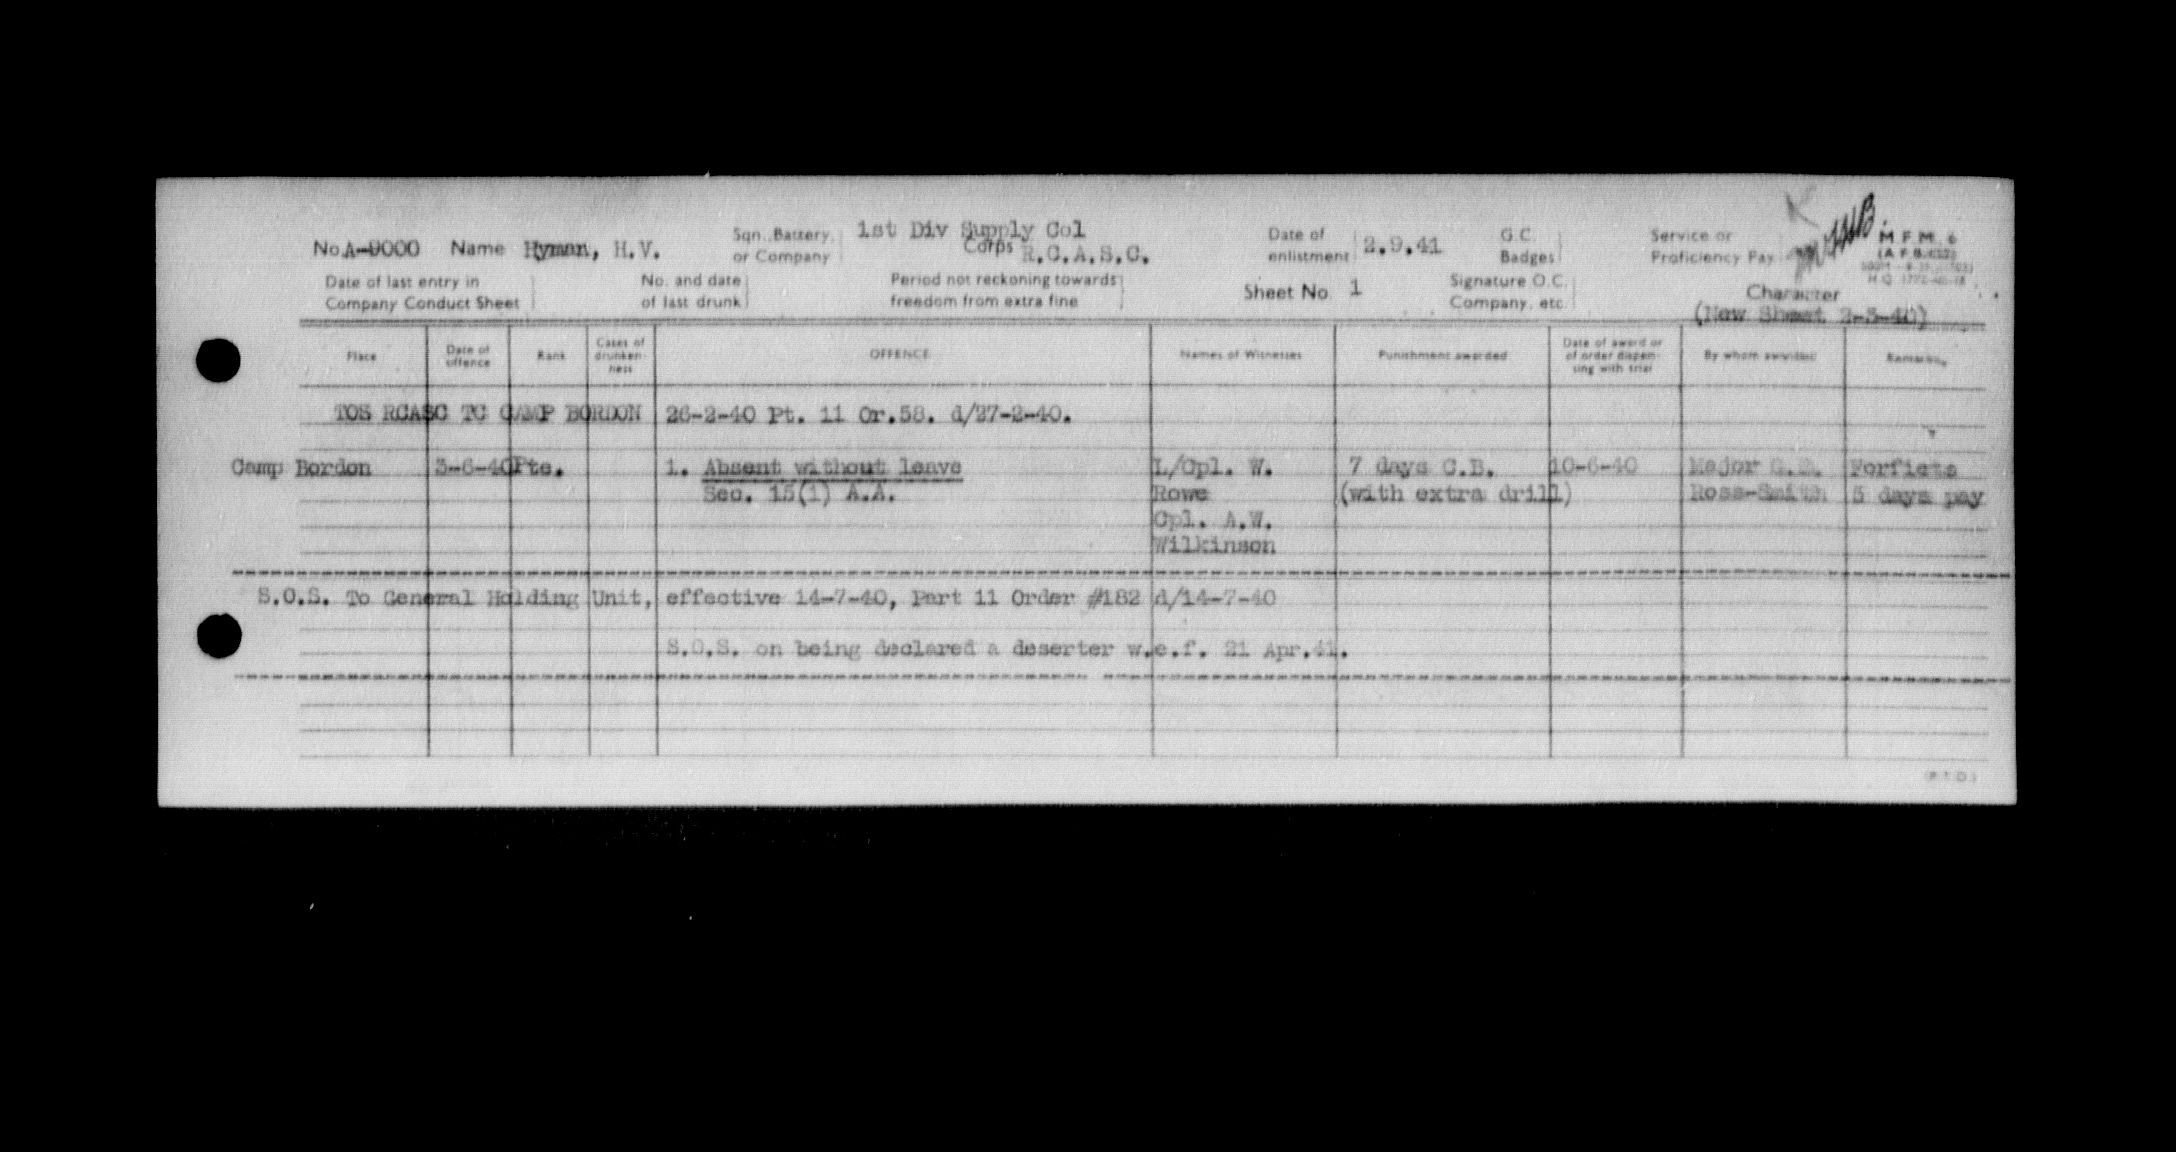 1st Div Supply Col
No. A-9000 Name Hyman, H.V. Sqn., Battery, or Company Corps R.C.A.S.C. Date of enlistment 2.9.41 G.C. Badges Service or Proficiency Pay M.F.M. 6
Date of last entry in Company Conduct Sheet No. and date of last drunk Period not reckoning towards freedom from extra fine Sheet No. 1 Signature O.C. Company, etc. Character
(New Sheet 2-3-40)
Place Date of offence Rank Cases of drunken-ness OFFENCE Names of Witnesses Punishment awarded Date of award or of order dispen-sing with trial By whom awarded Remarks
TOS RCASC TC CAMP BORDON 26-2-40 Pt. 11 Or.58. d/27-2-40.
Camp Bordon 3-6-40 Pte. 1. Absent without leave L/Cpl. W. 7 days C.B. 10-6-40 Major Forfiets
Sec. 15(1) A.A. Rowe (with extra drill) Ross-Smith 5 days pay
Cpl. A.W.
Wilkinson
S.O.S. To General Holding Unit, effective 14-7-40, Part 11 Order #182 d/14-7-40
S.O.S. on being declared a deserter w.e.f. 21 Apr.41.
(P.T.O.)